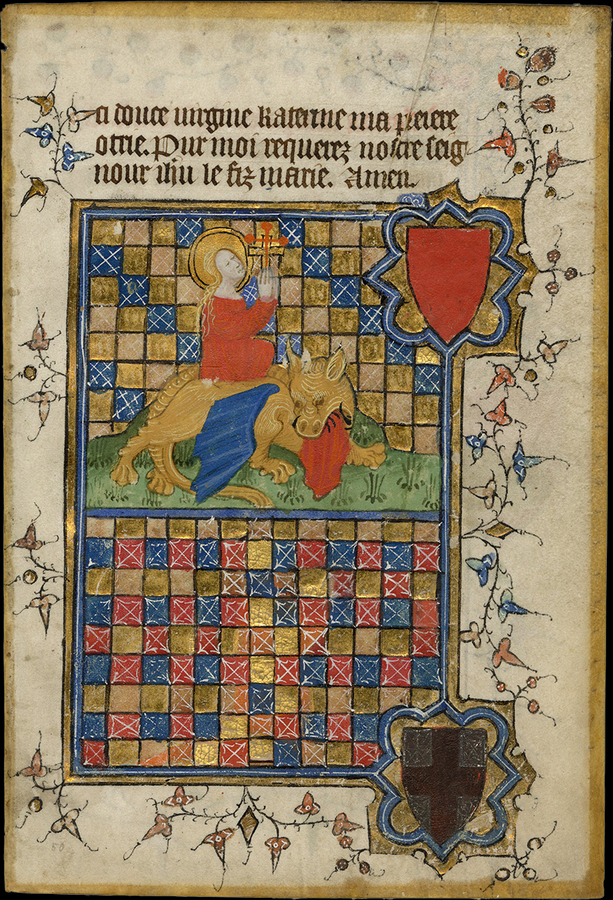 ci douce uirgine katerine ma preiere
otrie. Pur moi requerez nostre seig
nour ihu le fiz marie. Amen.